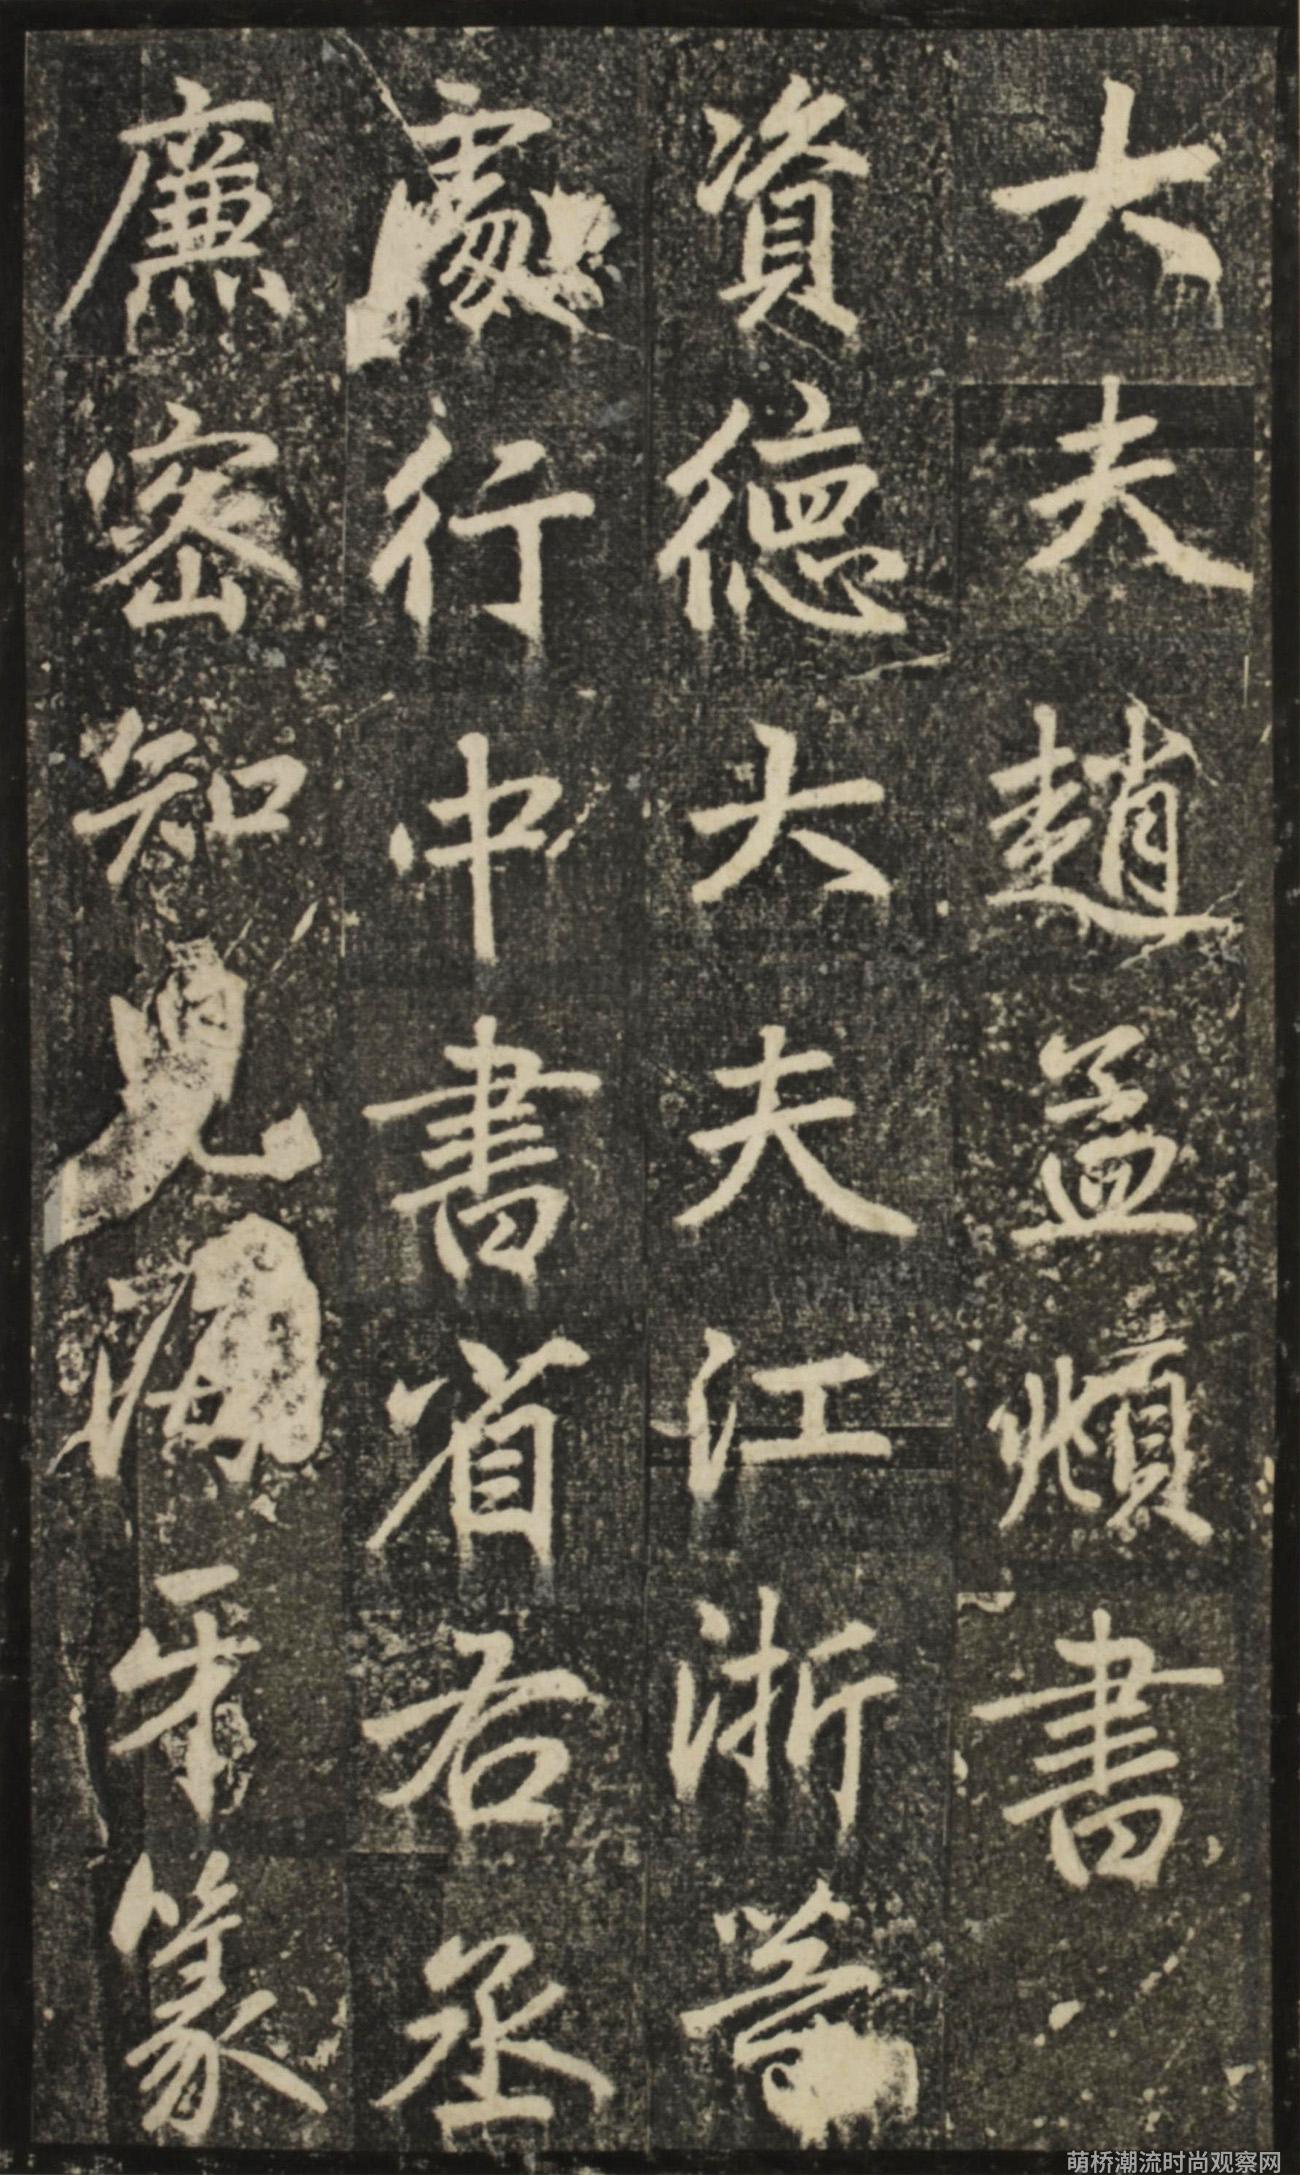 大夫趙孟頫書
資德大夫江浙等
處行中書省右丞
廉密知兒海牙篆
萌桥潮流时尚观察网